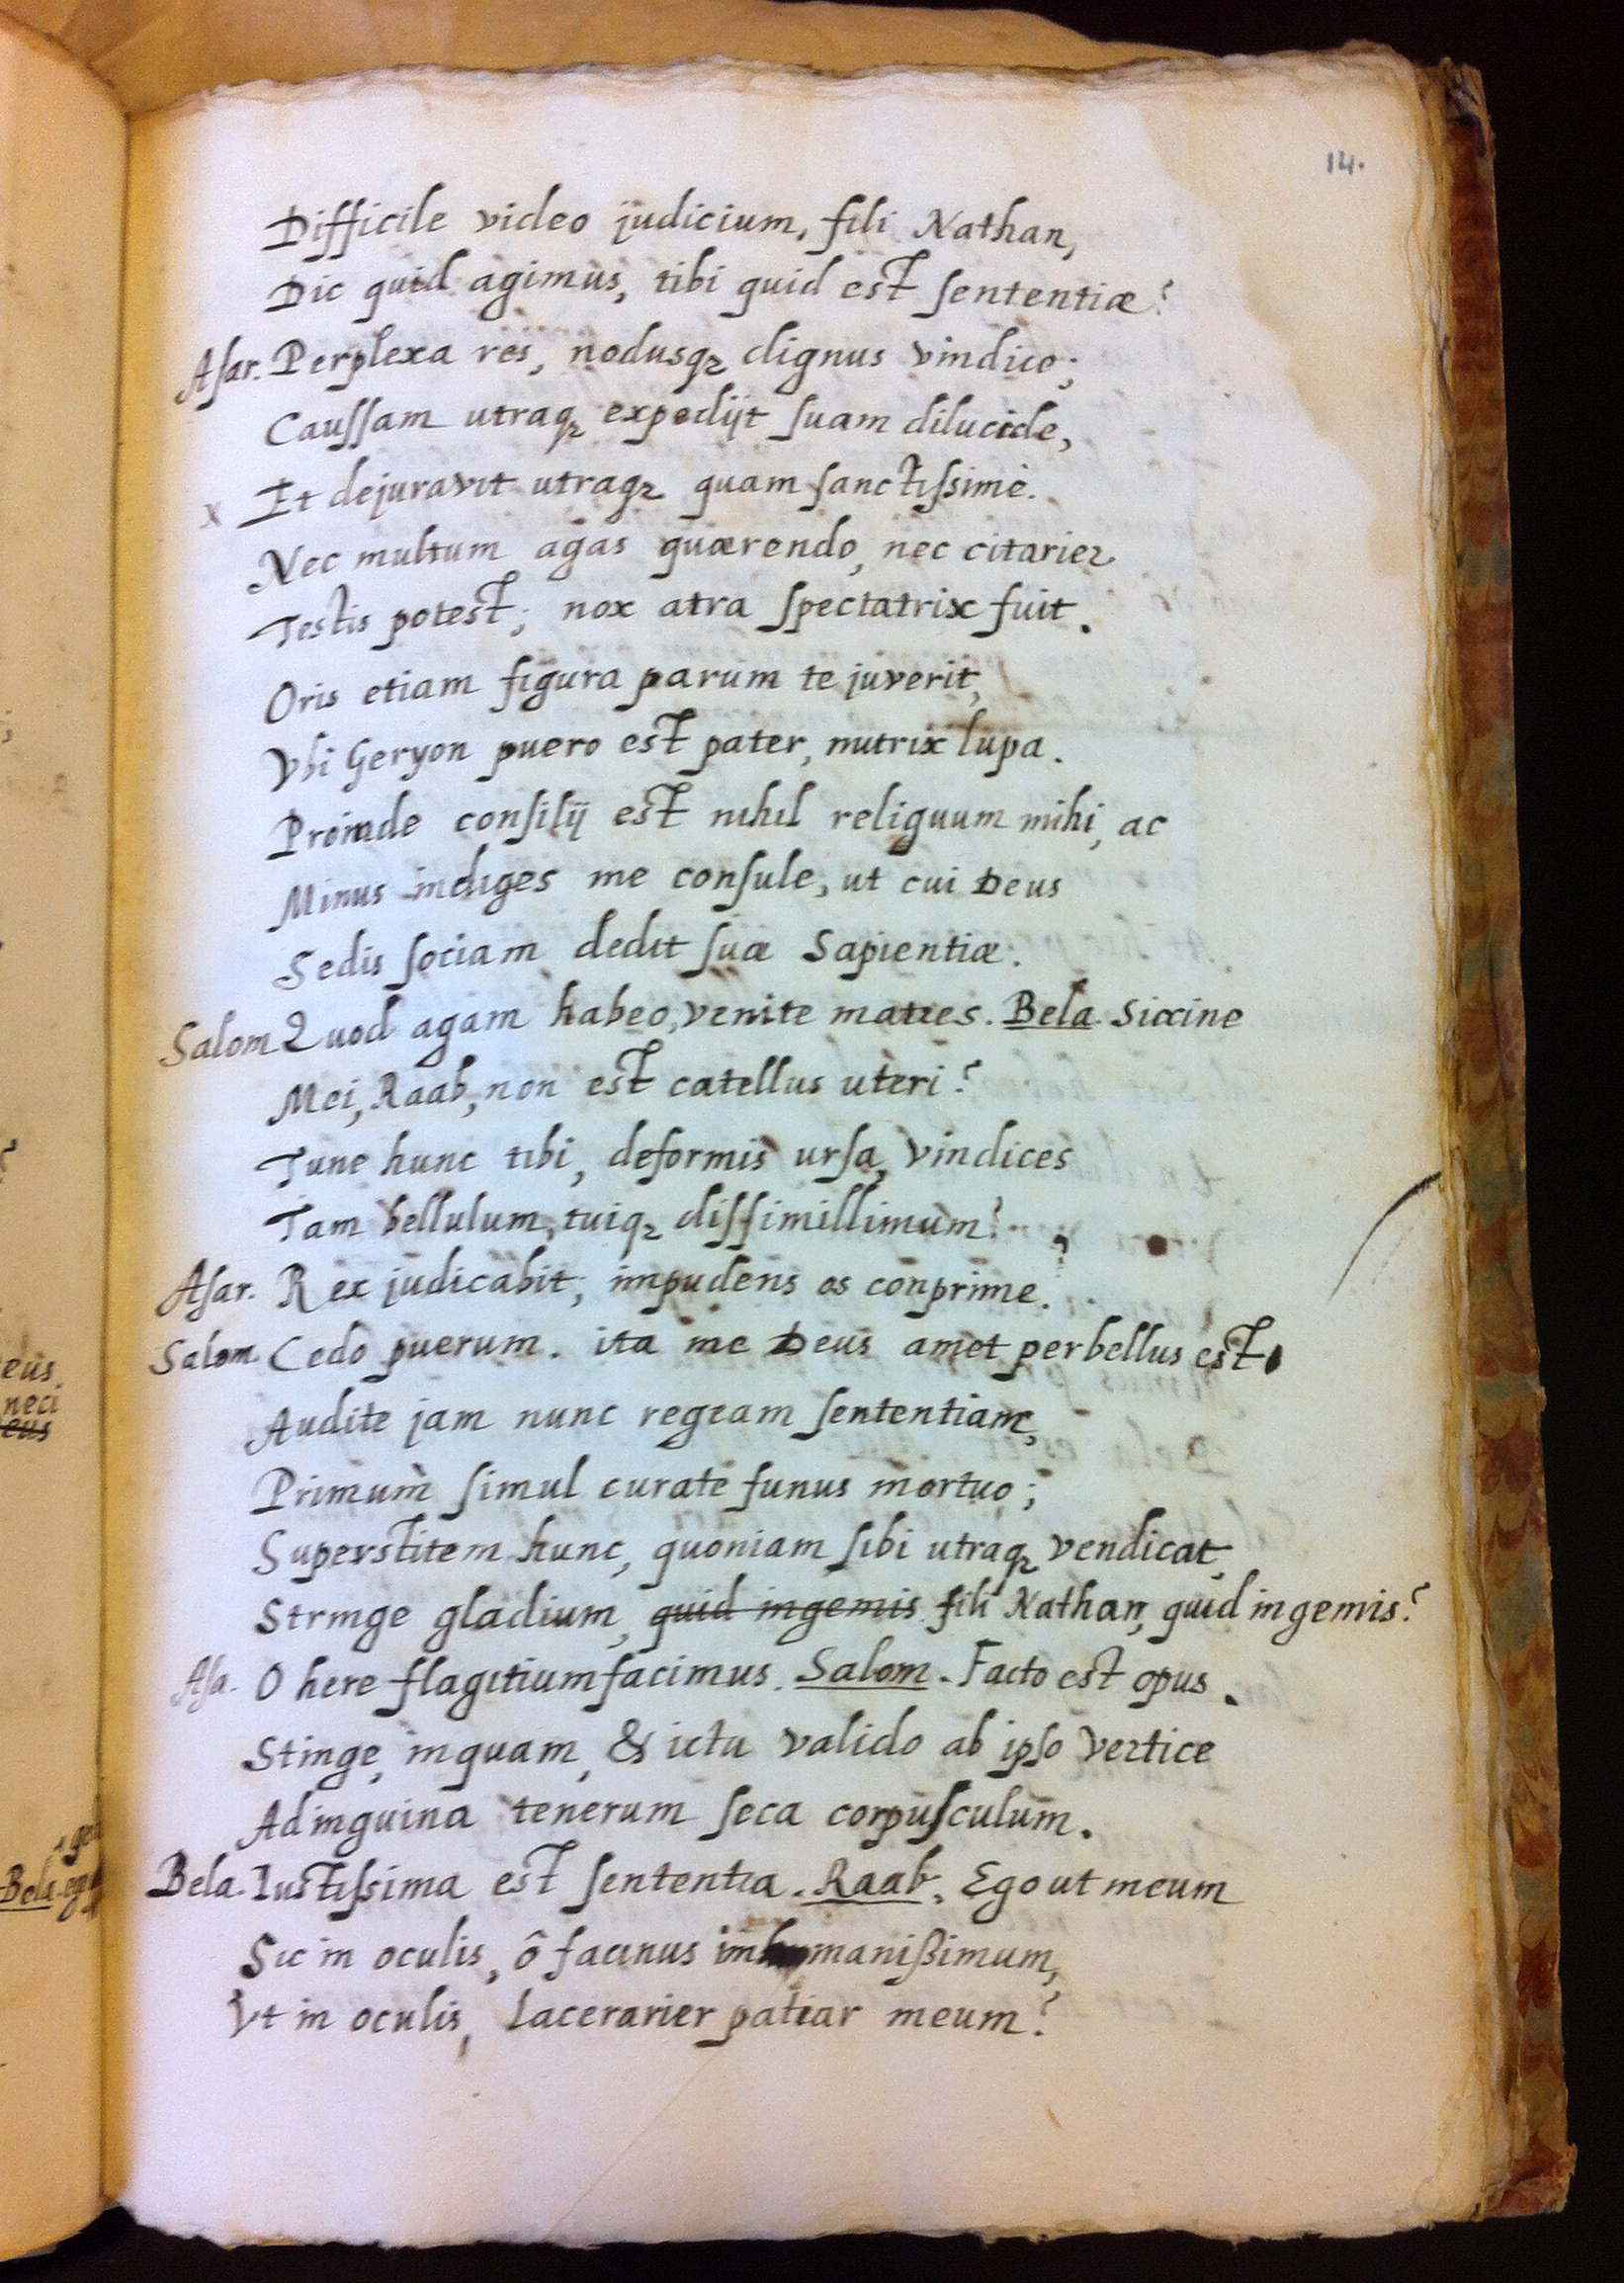 14.
Difficile video judicium, fili Nathan,
Dic quid agimus, tibi quid est sententiæ?
Asar. Perplexa res, nodusqꝫ dignus vindice;
Caussam utraqꝫ expediit suam dilucide,
x Et dejuravit utraqꝫ quam sanctissimè.
Nec multum agas quærendo, nec citarier
Testis potest; nox atra spectatrix fuit.
Oris etiam figura parum te juverit,
Vbi Geryon puero est pater, nutrix lupa.
Proinde consilij est nihil reliquum mihi, ac
Minus indiges me consule, ut cui Deus
Sedis sociam dedit suæ Sapientiæ.
Salom Quod agam habeo, venite matres. Bela. Siccine
Mei, Raab, non est catellus uteri?
Tune hunc tibi, deformis ursa, vindices
Tam bellulum, tuiqꝫ dissimillimum?
Asar. Rex judicabit; impudens os conprime.
Salom. Cedo puerum. ita me Deus amet perbellus est.
Audite jam nunc regeam sententiam,
Primum simul curate funus mortuo;
Superstitem hunc, quoniam sibi utraqꝫ vendicat,
Stringe gladium, quid ingemis fili Nathan, quid ingemis?
Asa. O here flagitium facimus. Salom. Facto est opus.
Stinge, inquam, & ictu valido ab ipso vertice
Ad inguina tenerum seca corpusculum.
Bela. Iustissima est sententia. Raab. Ego ut meum
Sic in oculis, ô facinus inhumanißimum,
Vt in oculis, lacerarier patiar meum?
eus
neci
eus
Bela.